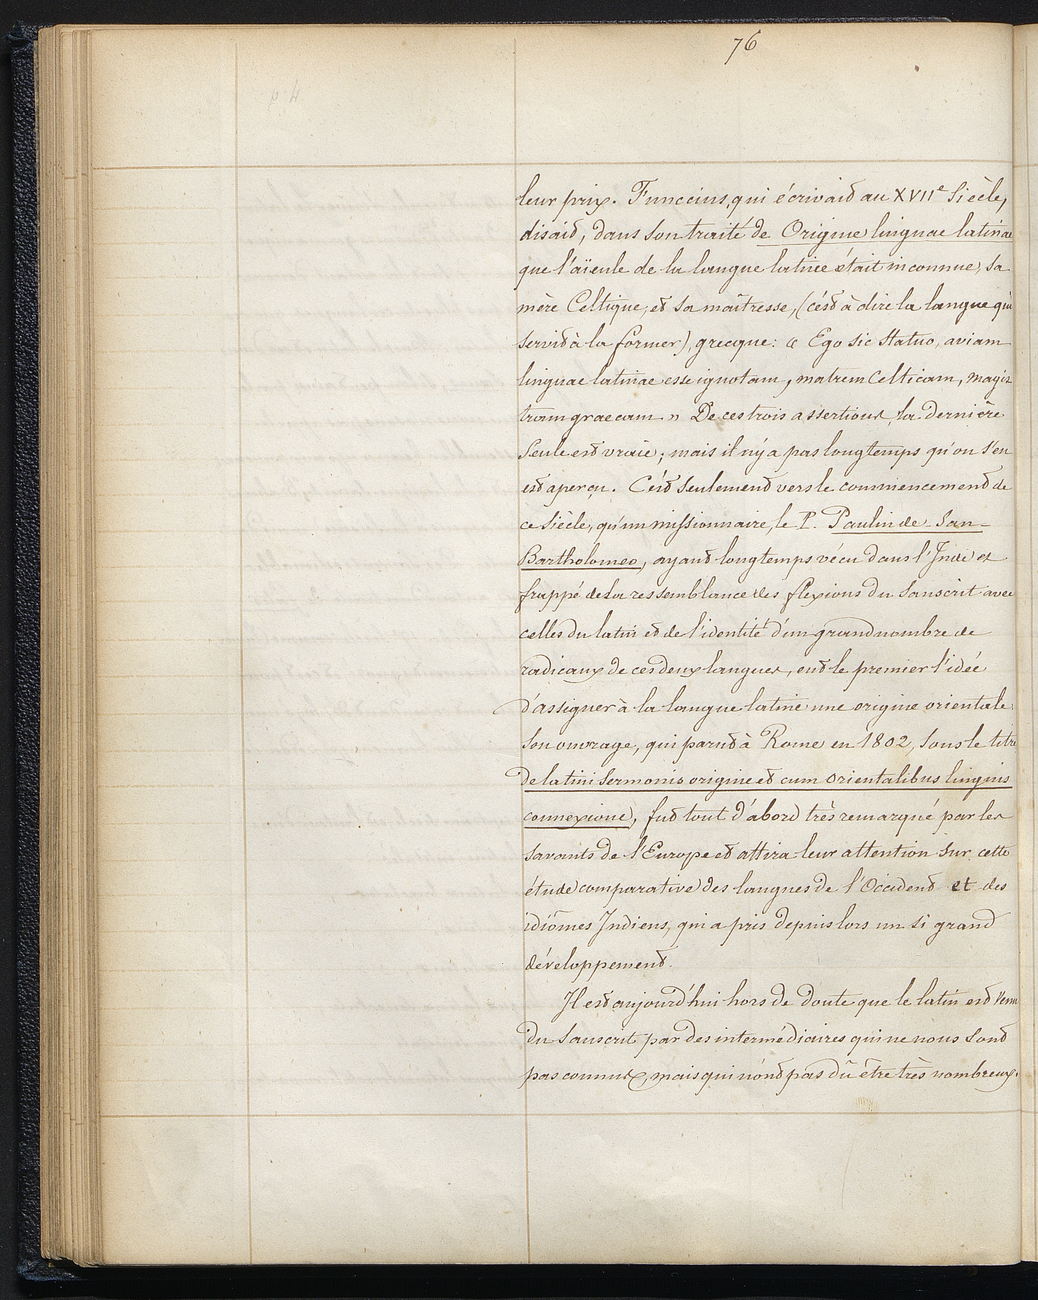 76
leur prix. Funccius, qui écrivait au XVIIe Siècle,
disait, dans son traité de Origine linguae latinae
que l'aïeule de la langue latine était inconnue, sa
mère Celtique, et sa maîtresse, (c'est à dire la langue qui
servit à la former), grecque: « Ego sic Statuo, aviam
linguae latinae esse ignotam, matrem Celticam, magis
tram graecam » De ces trois assertions, la dernière
Seule est vraie; mais il n'y a pas longtemps qu'on s'en
est aperçu. C'est Seulement vers le commencement de
ce Siècle, qu'un missionnaire, le P. Paulin de San-
Bartholomeo, ayant longtemps vécu dans l'Inde et
frappé de la ressemblance des flexions du Sanscrit avec
celles du latin et de l'identité d'un grand nombre de
radicaux de ces deux langues, eut le premier l'idée
d'assigner à la langue latine une origine orientale.
Son ouvrage, qui parut à Rome en 1802, sous le titre
de latini Sermonis origine et cum orientalibus linguis
connexione, fut tout d'abord très remarqué par les
savants de l'Europe et attira leur attention sur cette
étude comparative des langues de l'Occident et des
idiômes Indiens, qui a pris depuis lors un si grand
développement.
Il est aujourd'hui hors de doute que le latin est venu
du Sanscrit par des intermédiaires qui ne nous sont
pas connus, mais qui n'ont pas dû être très nombreux.